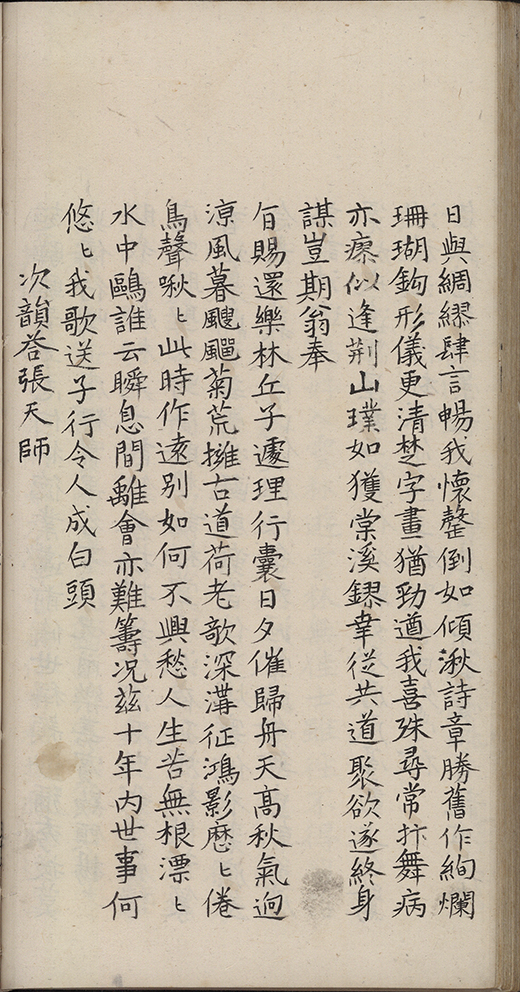 日與綢繆肆言暢我懷罄倒如傾湫詩章勝舊作絢爛
珊瑚鈎形儀更清楚字畫猶勁遒我喜殊尋常抃舞病
亦瘳似逢荆山璞如獲棠溪鏐幸從共道聚欲遂終身
謀豈期翁奉
旨賜還樂林丘子遽理行囊日夕催歸舟天髙秋氣迥
涼風暮颼飀菊荒擁古道荷老歌深溝征鴻影歷〻倦
鳥聲啾〻此時作遠别如何不興愁人生苦無根漂〻
水中鷗誰云瞬息間離會亦難籌况兹十年内世事何
悠〻我歌送子行令人成白頭
次韻答張天師